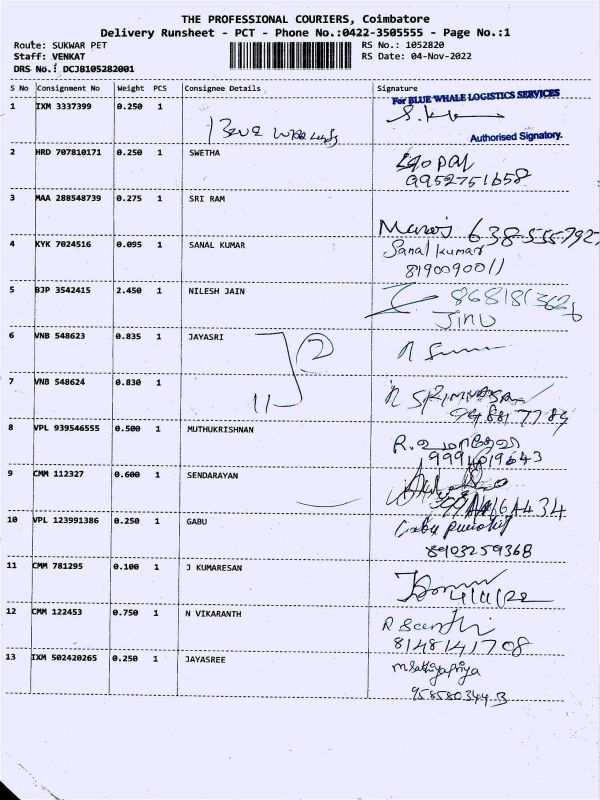 THE PROFESSIONAL COURIERS, Coimbatore
Delivery Runsheet - PCT - Phone No.:0422-3505555 - Page No.:1
Route: SUKWAR PET RS No.: 1052820
Staff: VENKAT RS Date: 04-Nov-2022
DRS No.: DCJB105282001
S No Consignment No Weight PCS Consignee Details Signature
1 IXM 3337399 0.250 1
For BLUE WHALE LOGISTICS SERVICES
Authorised Signatory.
2 HRD 707810171 0.250 1 SWETHA Gopal
9952751658
3 MAA 288548739 0.275 1 SRI RAM
Manoj
4 KYK 7024516 0.095 1 SANAL KUMAR Sanal kumar
8190090011
5 BJP 3542415 2.450 1 NILESH JAIN
JINU
6 VNB 548623 0.835 1 JAYASRI
2
7 VNB 548624 0.830 1
8 VPL 939546555 0.500 1 MUTHUKRISHNAN
9 CMM 112327 0.600 1 SENDARAYAN
10 VPL 123991386 0.250 1 GABU
8903259368
11 CMM 781295 0.100 1 J KUMARESAN
4/11/22
12 CMM 122453 0.750 1 N VIKARANTH
8148141708
13 IXM 502420265 0.250 1 JAYASREE